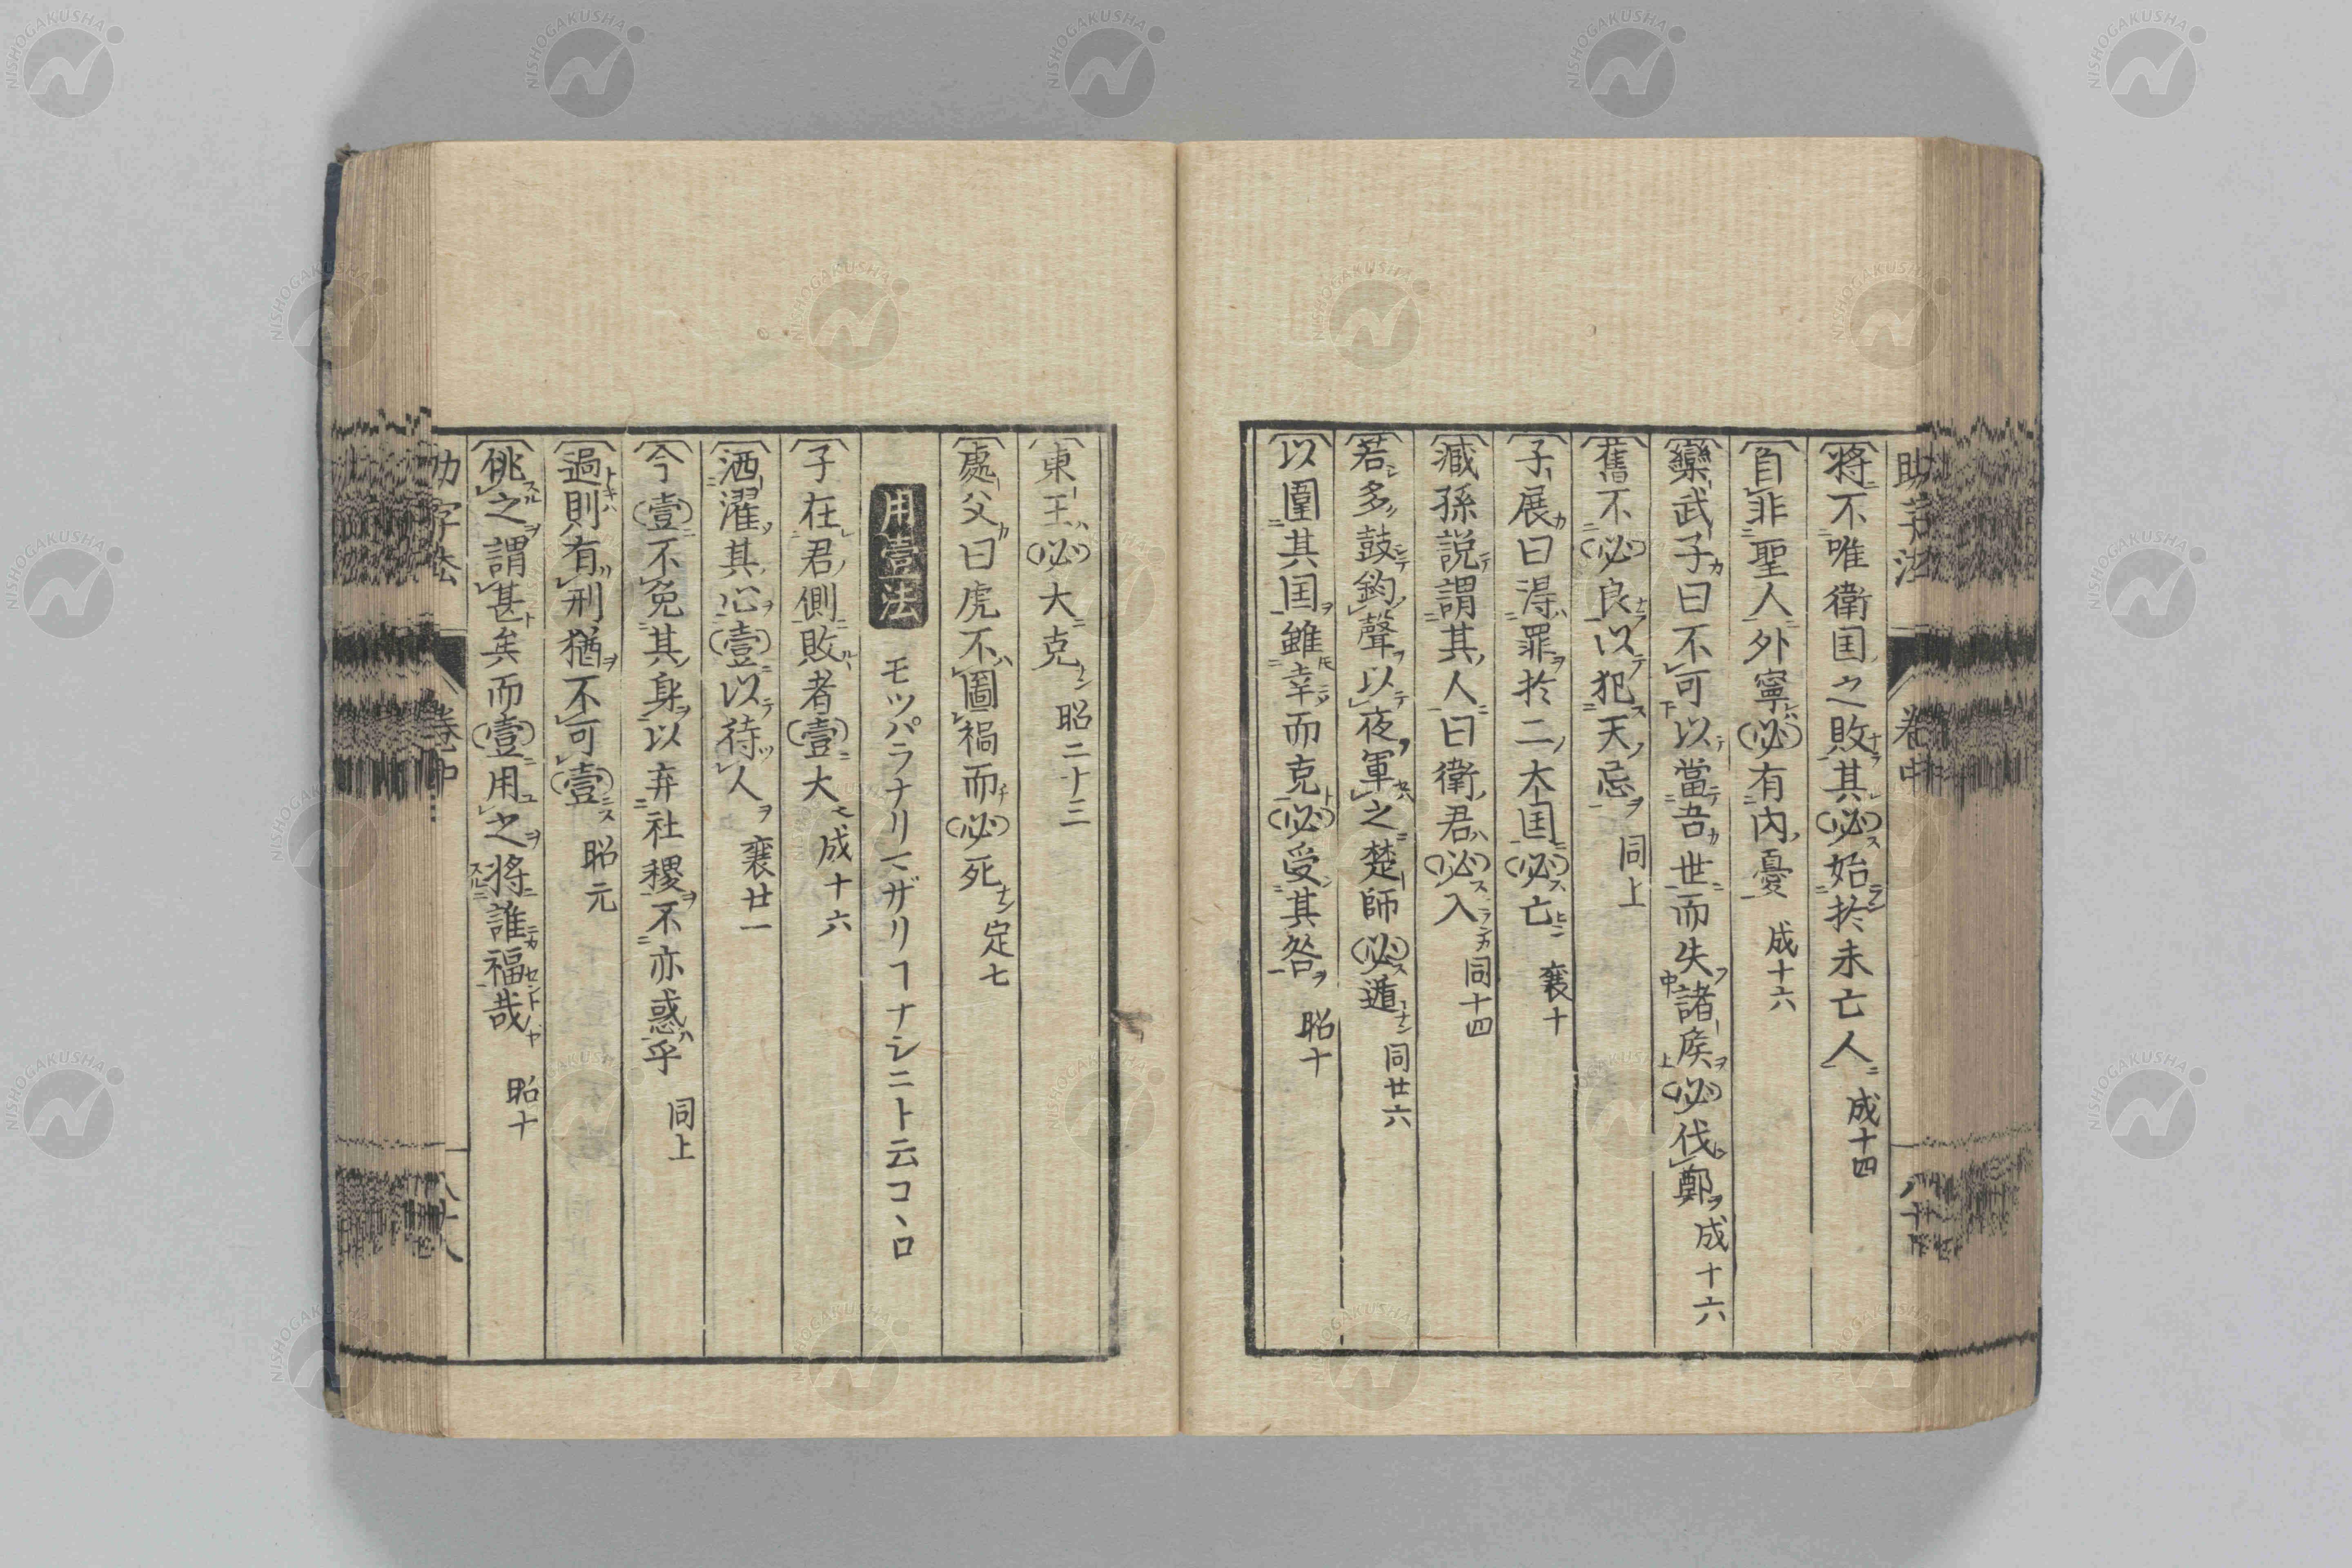 助字法 卷中
將不唯衛国之敗其必始於未亡人 成十四
自非聖人外寧必有内憂 成十六
欒武子曰不可以當吾世而失諸矦必伐鄭 成十六
舊不必良以犯天忌 同上
子展曰得罪於二大国必亡 襄十
臧孫説謂其人曰衛君必入 同十四
若多鼓鈞聲以夜軍之楚師必遁 同廿六
以圍其国雖幸而克必受其咎 昭十
東王必大克 昭二十三
處父曰虎不圖禍而必死 定七
用壹法 モツパラナリマザリフナシニト云コヽロ
子在君側敗者壹大 成十六
洒濯其心壹以待人 襄廿一
今壹不免其身以弃社稷不亦惑乎 同上
過則有刑猶不可壹 昭元
佻之謂甚矣而壹用之將誰福哉 昭十
助字法 卷中 八十八
NISHOGAKUSHA